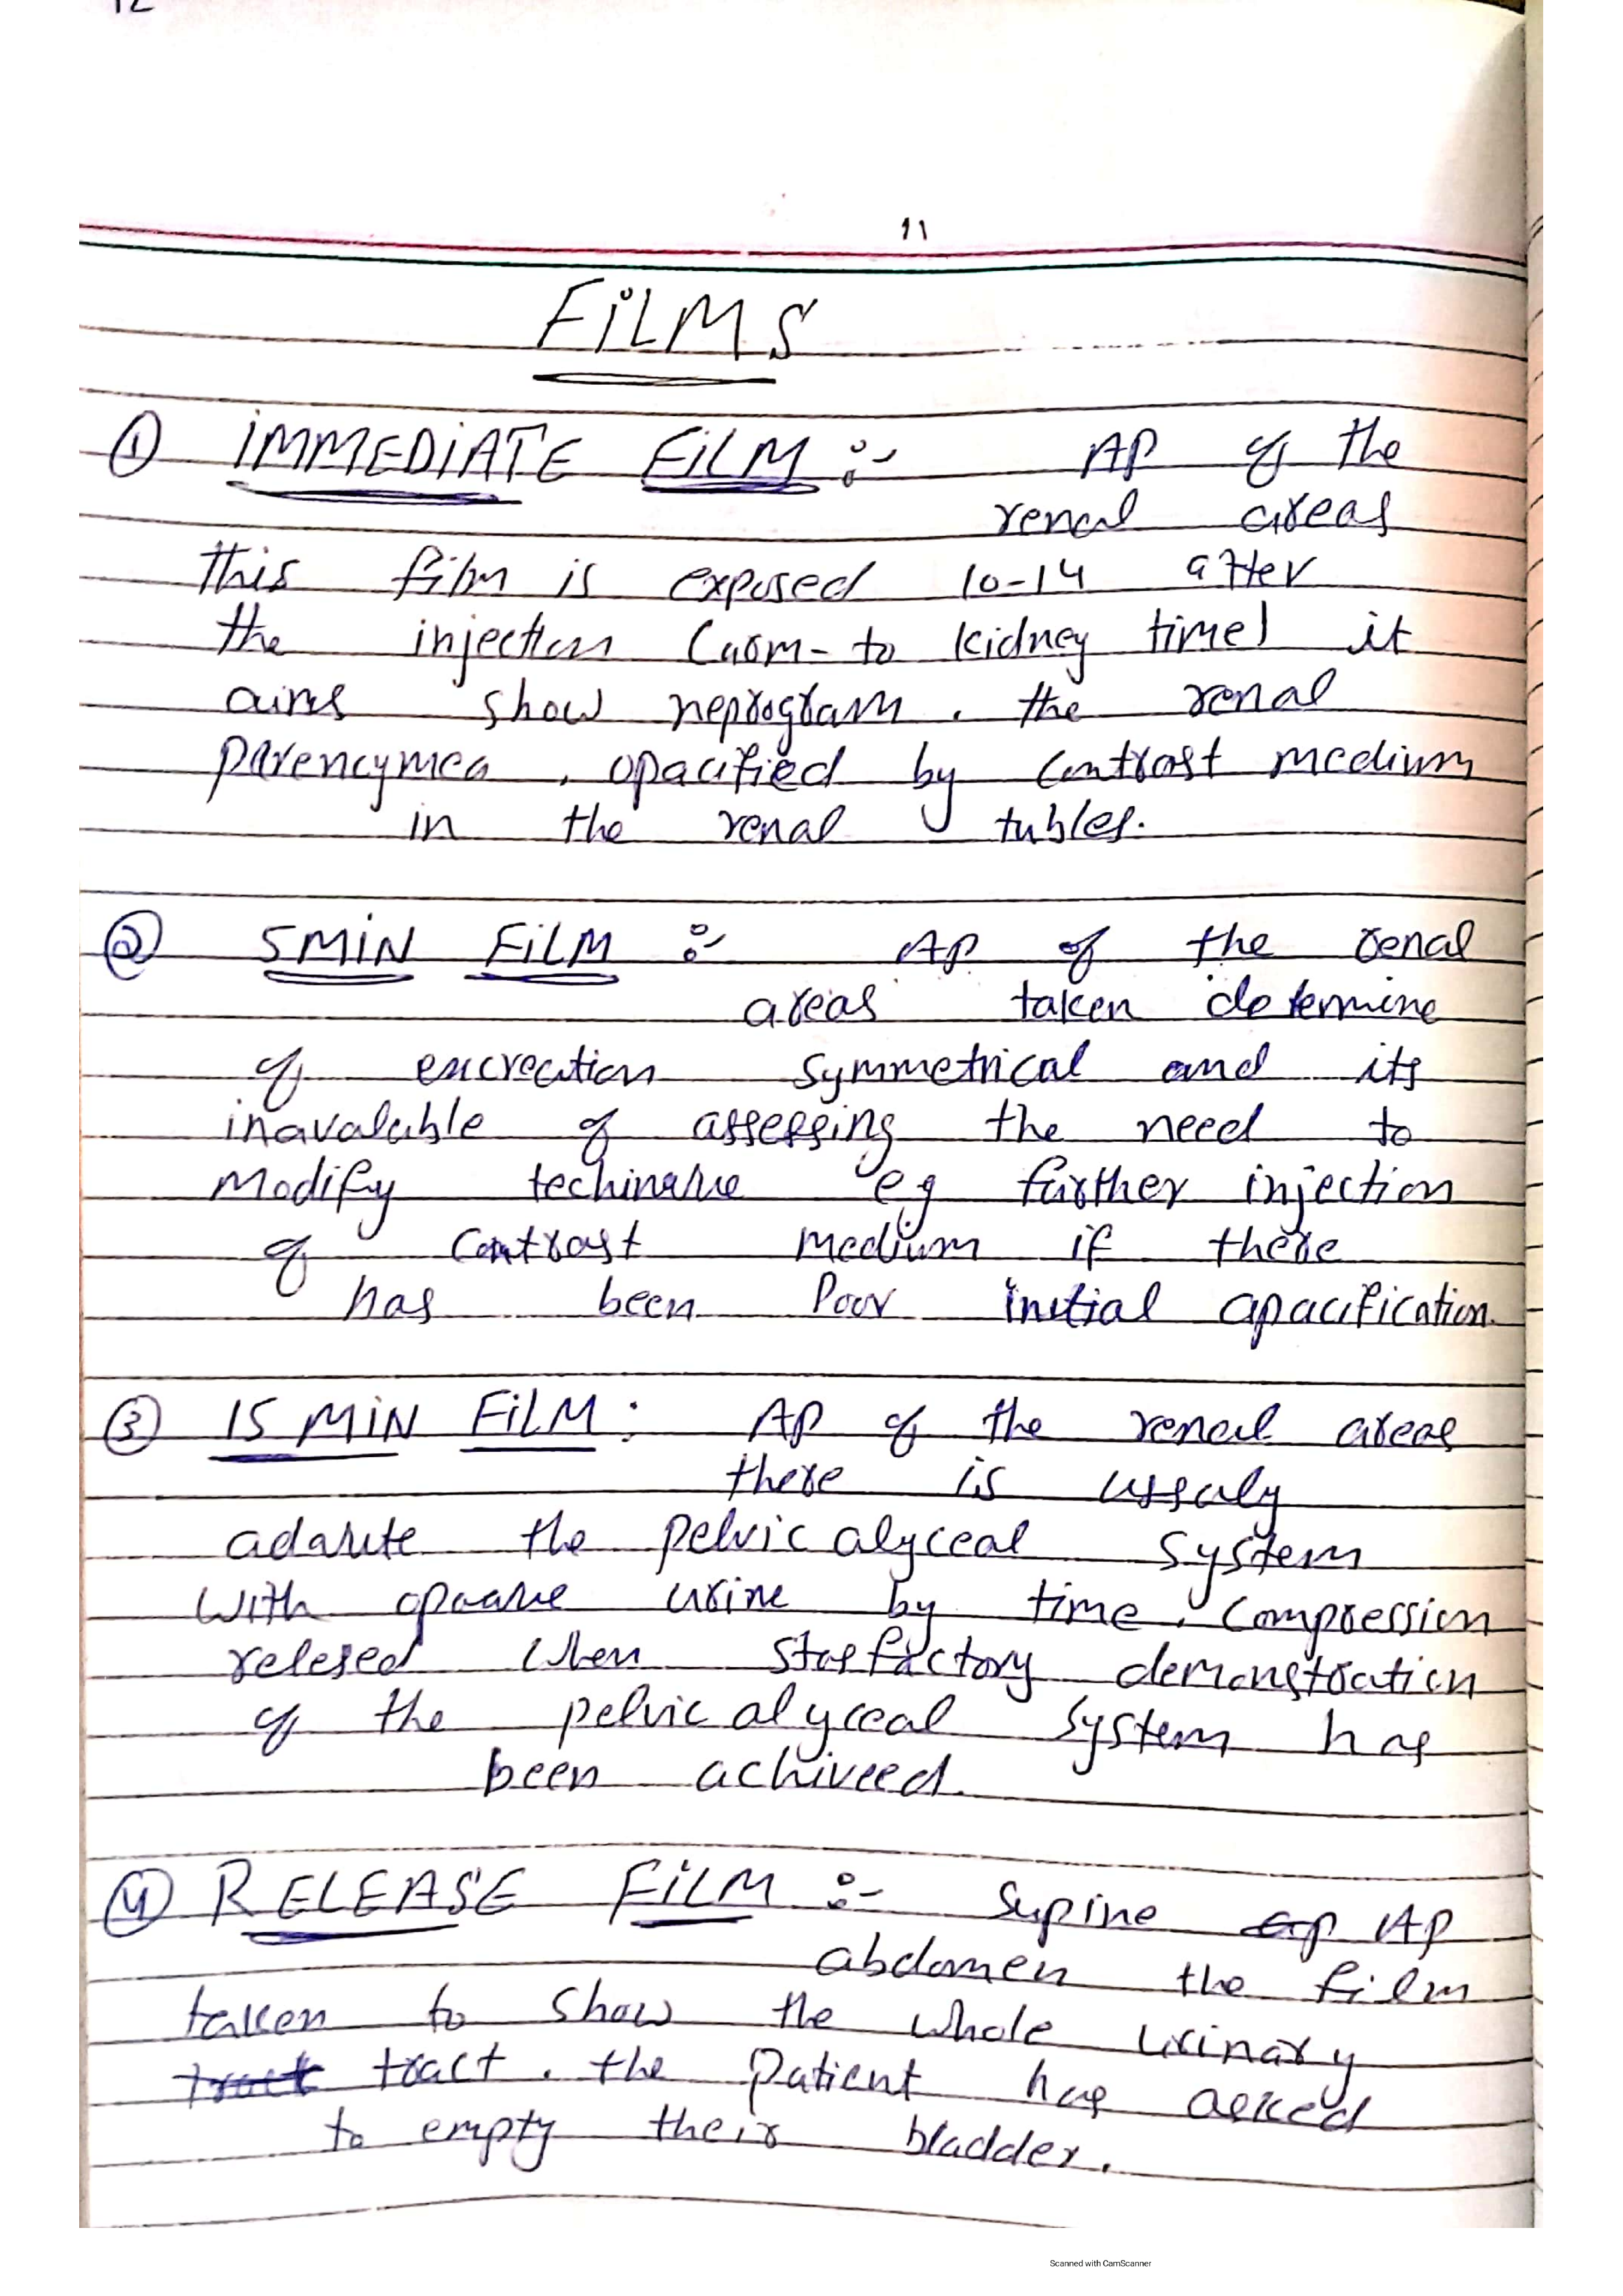 12
11
FiLMS
① iMMEDiATE FiLM :- AP of the
renal areas
this film is exposed 10-14 after
the injection (arm-to kidney time) it
aims show neprogram. the renal
parencymea, opacified by contrast medium
in the renal tubles.
② 5MiN FiLM :- AP of the renal
areas taken determine
of excreation symmetrical and its
inavaluble of assessing the need to
Modify techinque eg further injection
of contrast medium if there
has been Poor initial apacification.
③ 15 MiN FiLM : AP of the renal areas
there is ussaly
adaqute the pelvicalyceal system
with opaque urine by time. Compression
relesed when stasfactory demonstration
of the pelvicalyceal system has
been achiveed.
④ RELEASE FiLM :- Supine AP
abdomen the film
taken to show the whole urinary
tract. the patient has asked
to empty their bladder.
Scanned with CamScanner